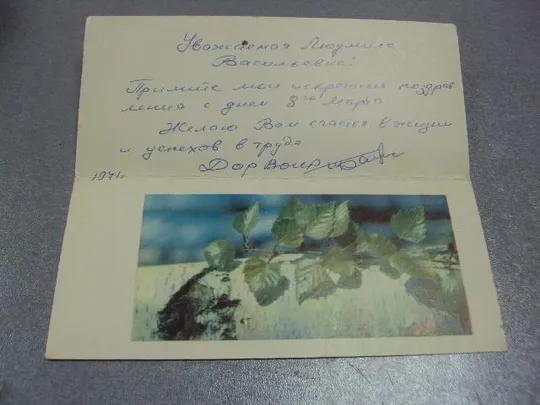 Уважаемая Людмила
Васильевна!
Примите мои искренния поздрав
ления с днем 8го Марта
Желаю Вам счастья в жизни
и успехов в труде
1971г